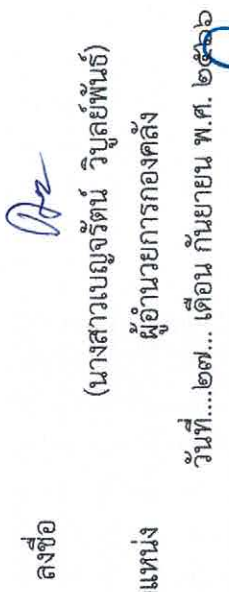 ลงชื่อ
(นางสาวเบญจรัตน์ วิบูลย์พันธ์)
แหน่ง ผู้อำนวยการกองคลัง
วันที่....๒๗... เดือน กันยายน พ.ศ. ๒๕๖๖